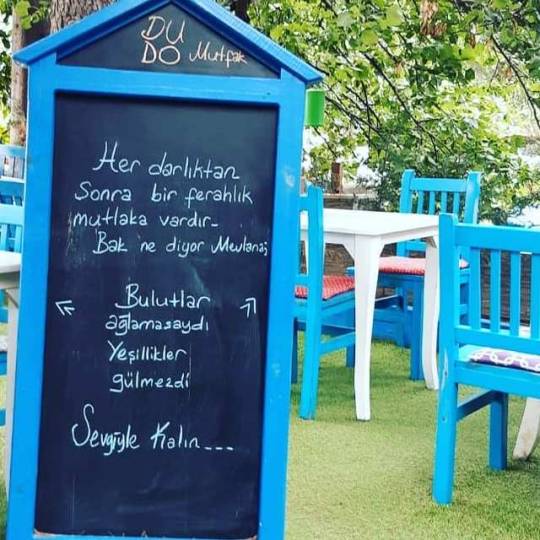 DU
DO Mutfak
Her darlıktan
Sonra bir ferahlık
mutlaka vardır-
Bak ne diyor Mevlana;
Bulutlar
ağlamasaydı
Yeşillikler
gülmezdi
Sevgiyle Kalın...